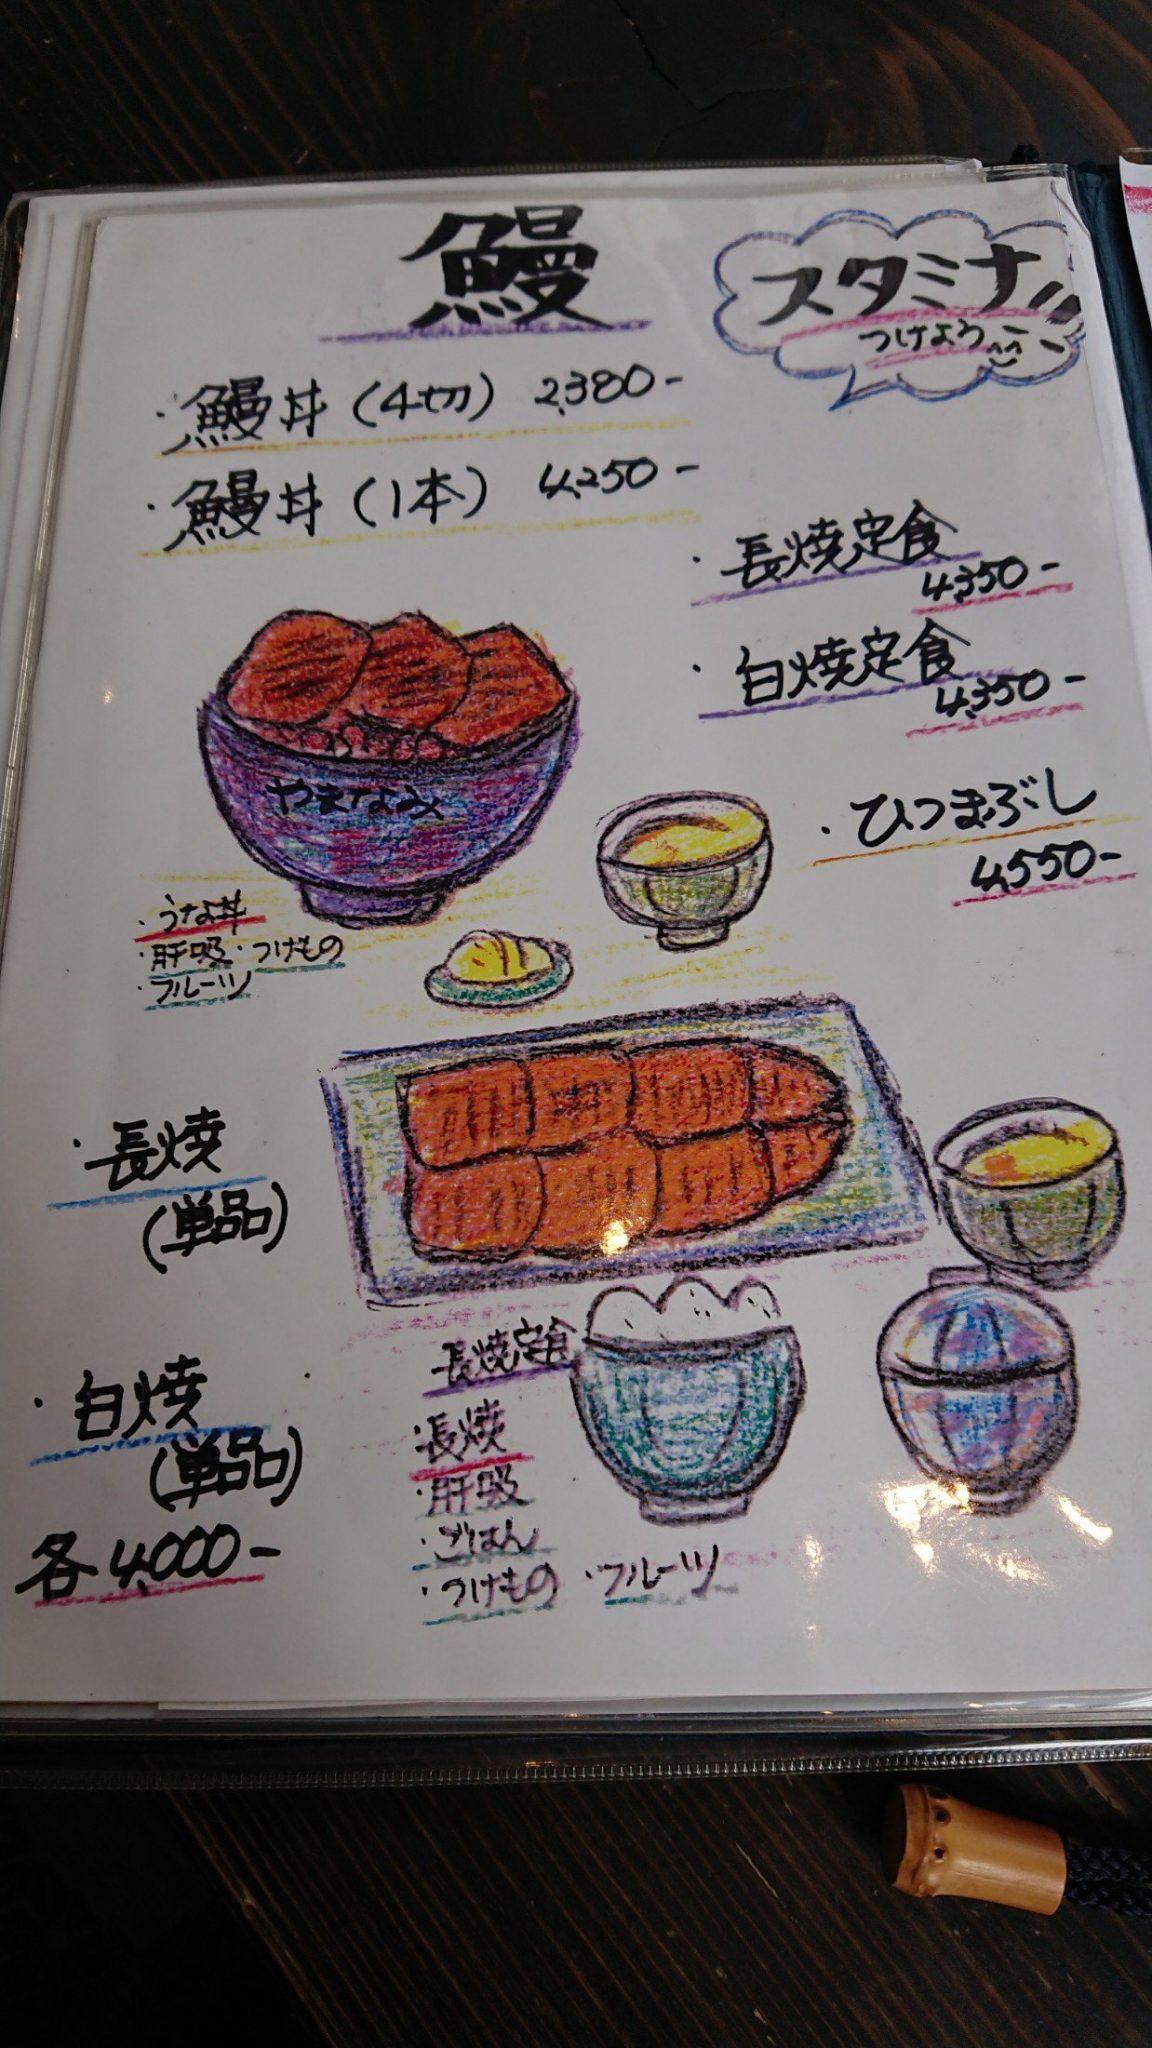 鰻
スタミナ!!
つけよう
・鰻丼(4切) 2,380-
・鰻丼(1本) 4,250-
・長焼定食
4,350-
・白焼定食
4,350-
・ひつまぶし
4,550-
やまなみ
・うな丼
・肝吸・つけもの
・フルーツ
・長焼
(単品)
・白焼
(単品)
各4,000-
長焼定食
・長焼
・肝吸
・ごはん
・つけもの ・フルーツ